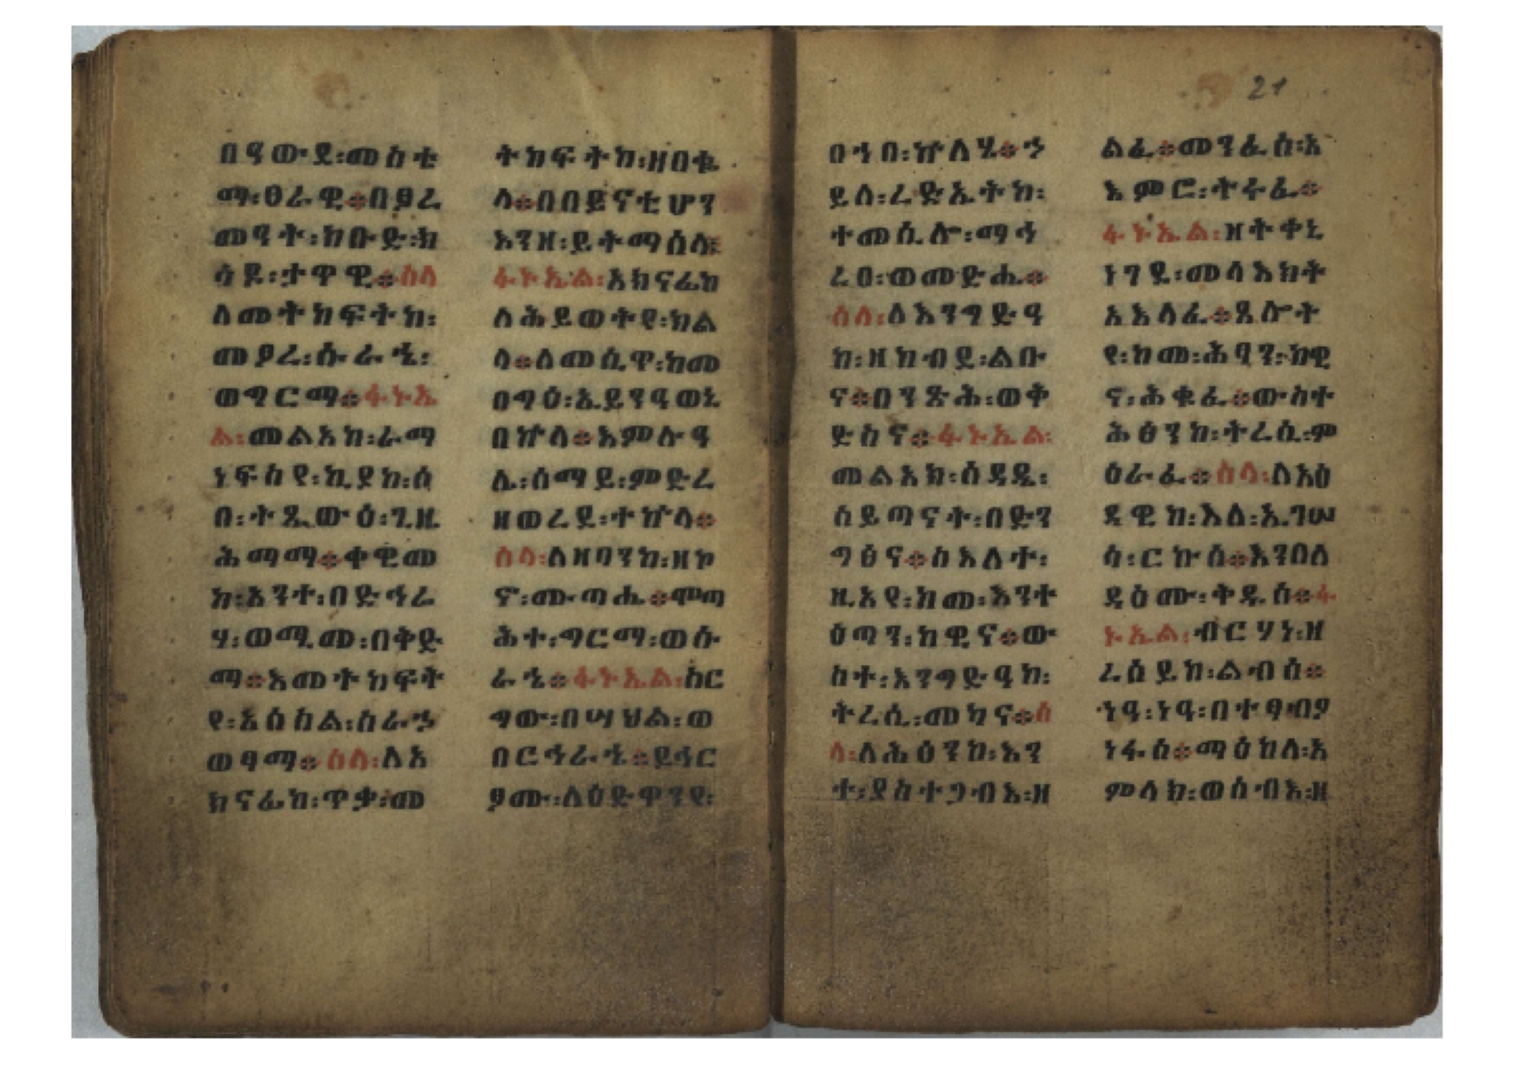 በዓውደ፡መስቴ
ማ፡ፀራዊ።በፀረ
መዓት፡ከቡድ፡ክ
ሳዱ፡ታዋዊ።ሰላ
ለመትከፍትከ፡
መያረ፡ሱራኄ፡
ወግርማ።ፋኑኤ
ል፡መልአከ፡ራማ
ነፍስየ፡ኪያከ፡ሰ
በ፡ትጼውዕ፡ጊዜ
ሕማማ።ቀዊመ
ከ፡እንተ፡በድኅሬ
ሃ፡ወሚመ፡በቅድ
ማ።እመትከፍት
የ፡አዕስል፡ስራኃ
ወፃማ።ሰላ፡ለአ
ክናፊከ፡ጥቃ፡መ
ትከፍትከ፡ዘበቁ
ላ።በበይናቲሆን
እንዘ፡ይትማሰላ፡
ፋኑኤል፡አክናፊከ
ለሕይወትየ፡ክል
ላ።ለመሲዋ፡ከመ
በግዕ፡ኢይንዓወኒ
በኵላ።እምሉዓ
ሌ፡ሰማይ፡ምድረ
ዘወረደ፡ተኵላ።
ሰላ፡ለዘባንከ፡ዘኮ
ኖ፡ሙጣሔ።ሞጣ
ሕተ፡ግርማ፡ወሱ
ራኄ።ፋኑኤል፡ከር
ግው፡በሣህል፡ወ
በርኅራኄ።ይኅር
ያሙ፡ለዕድዋንየ፡
በኀበ፡ኵለሄ።ኃ
ይለ፡ረድኤትከ፡
ተመሲሎ፡ማኅ
ረፀ፡ወመድሔ።
ሰላ፡ለእንግድዓ
ከ፡ዘከብደ፡ልቡ
ና።በንጽሕ፡ወቅ
ድስና።ፋኑኤል፡
መልአክ፡ሰዳዴ፡
ሰይጣናት፡በድን
ግፅና።ስእለት፡
ዚአየ፡ከመ፡እንተ
ዕጣን፡ከዊና።ው
ስተ፡እንግድዓከ፡
ትረሲ፡መካና።ሰ
ላ፡ለሕፅንከ፡እን
ተ፡ያስተጋብእ፡ዘ
ልፈ።መንፈስ፡አ
እምሮ፡ትሩፈ።
ፋኑኤል፡ዘትቀኒ
ነገደ፡መላእክት
አእላፈ።ጸሎት
የ፡ከመ፡ሕፃን፡ከዊ
ና፡ሕቁፈ።ውስተ
ሕፅንከ፡ትረሲ፡ም
ዕራፈ።ሰላ፡ለአዕ
ዳዊከ፡እለ፡ኢገሠ
ሳ፡ርኩሰ።እንበለ
ዳዕሙ፡ቅዱሰ።ፋ
ኑኤል፡ብርሃነ፡ዘ
ረሰይከ፡ልብሰ።
ነዓ፡ነዓ፡በተፃብያ
ነፋስ።ማዕከለ፡አ
ምላክ፡ወሰብእ፡ዘ
21